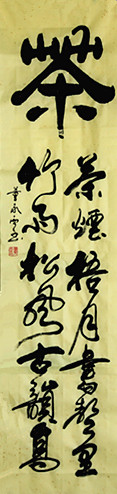 茶
茶煙梧月書聲里
竹雨松風古韻高